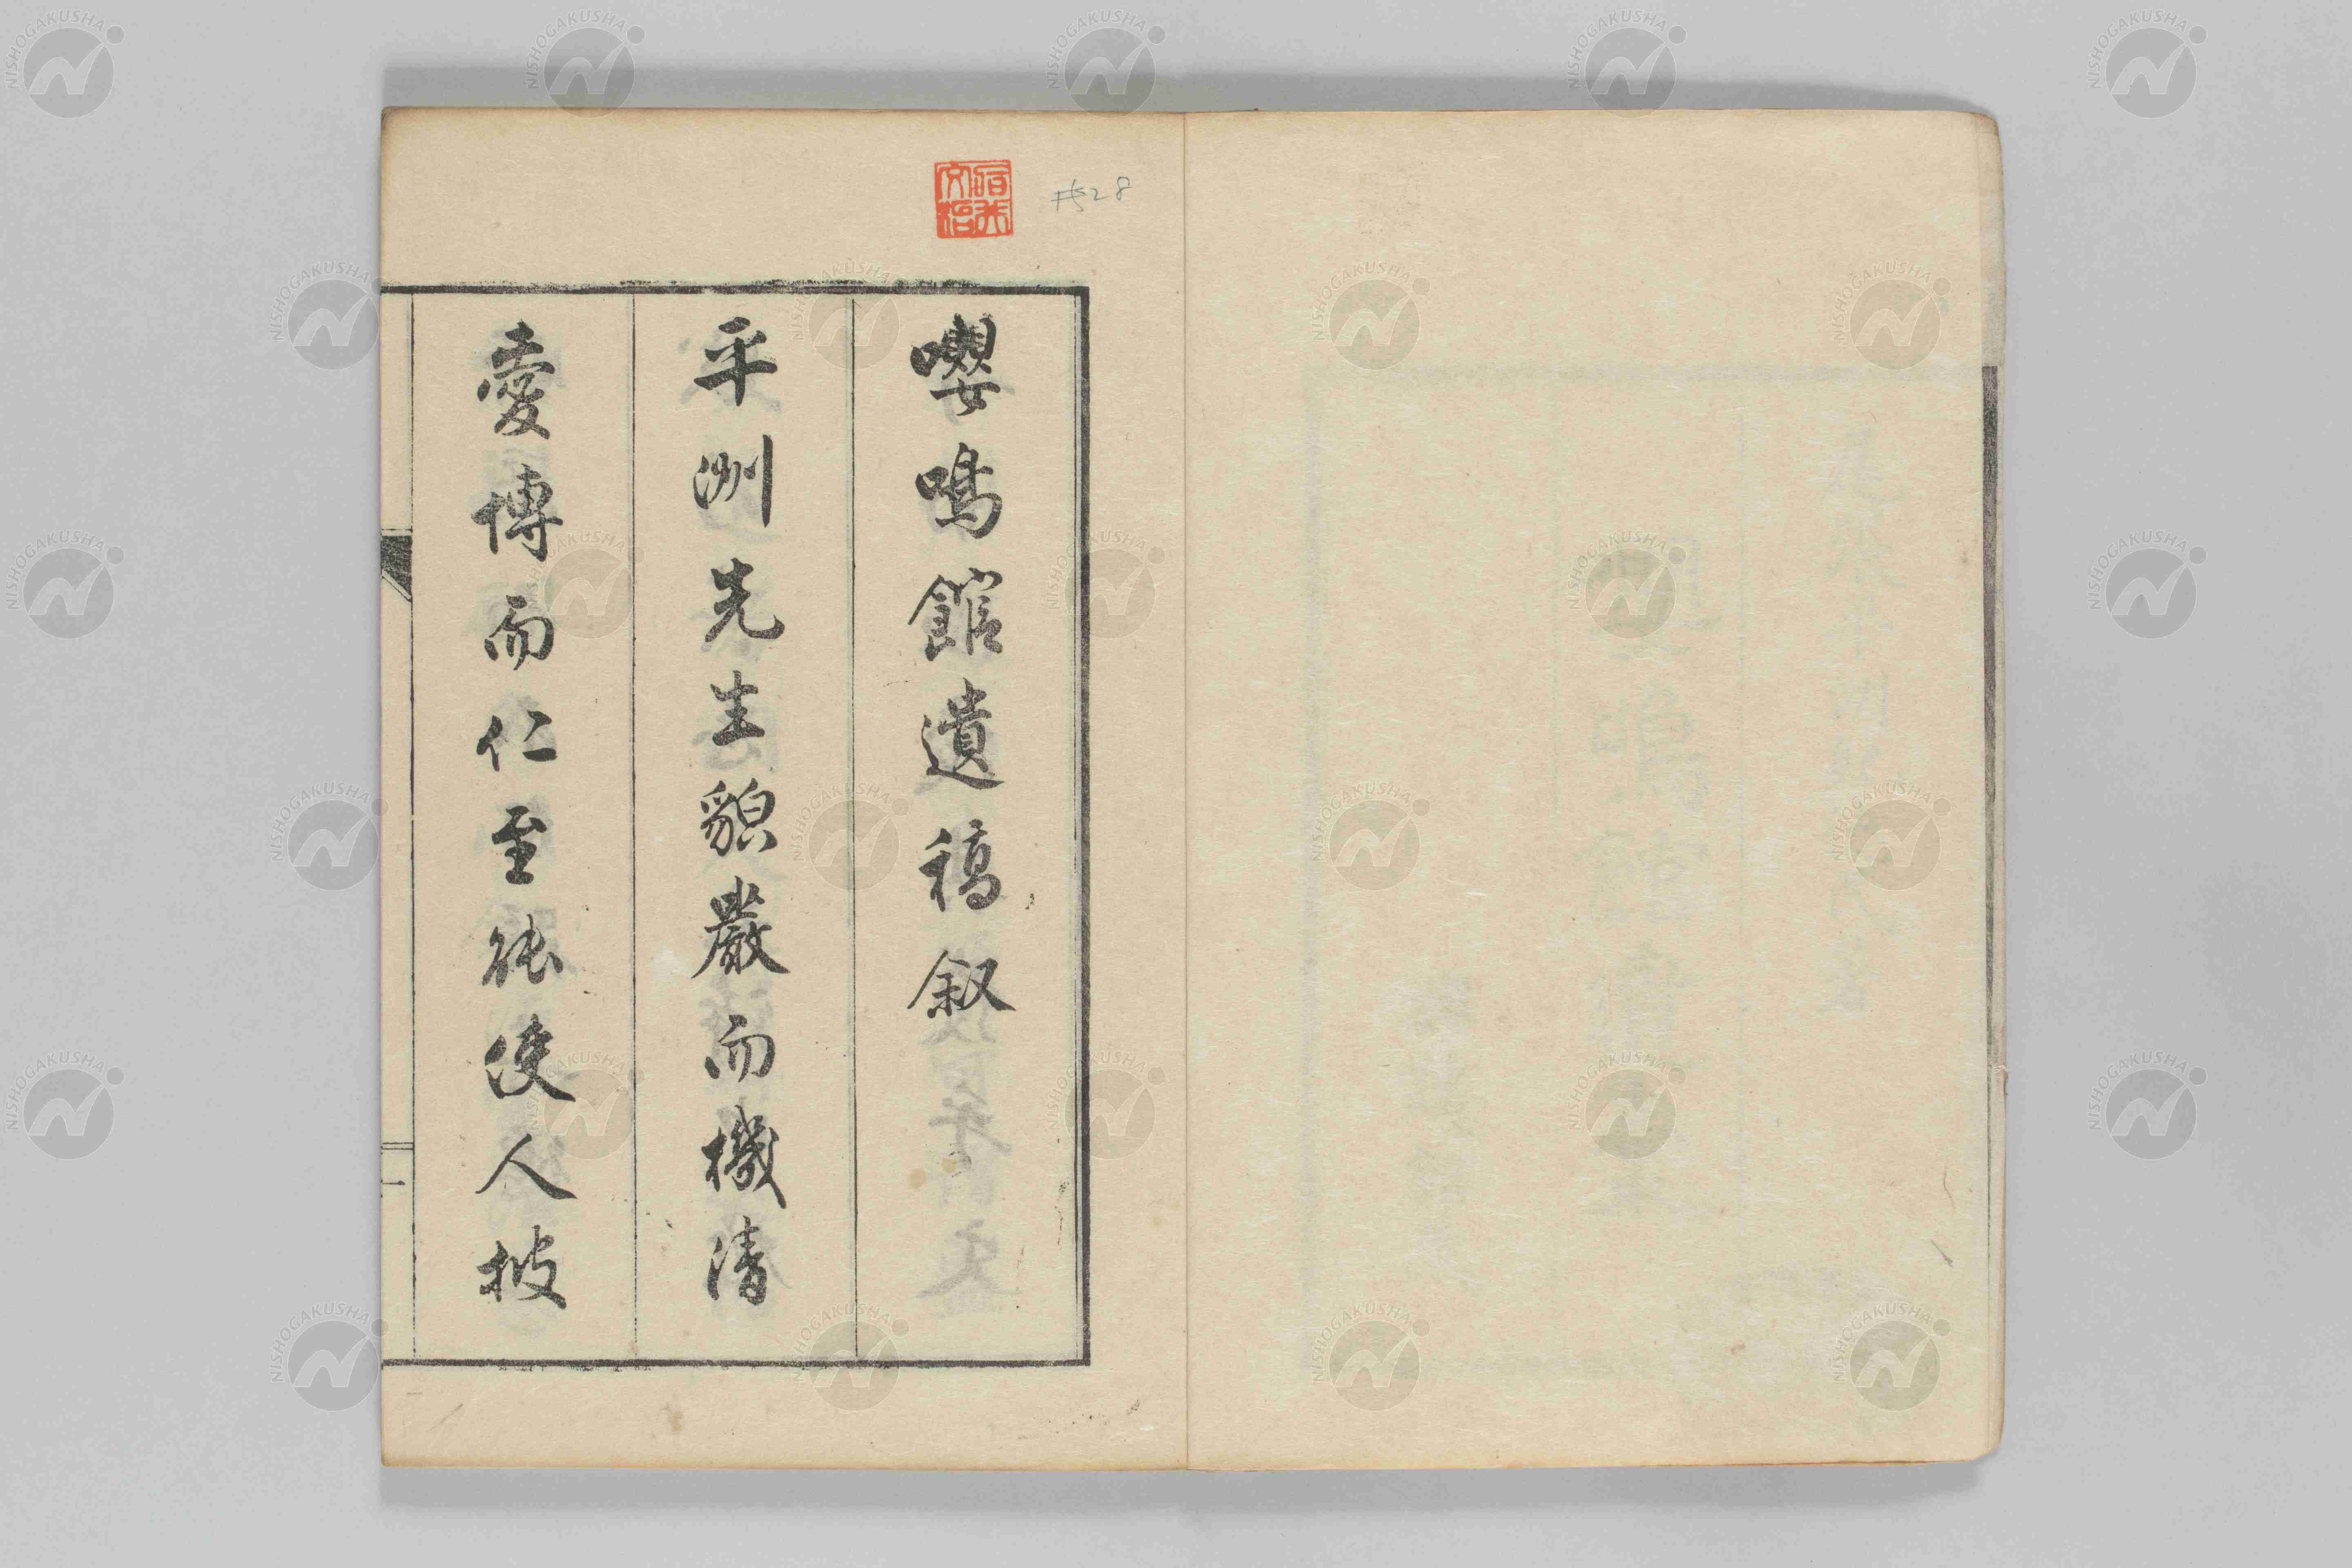 嚶鳴館遺稿叙
平洲先生貌嚴而機清
愛博而仁至能使人披
一
#528
NISHOGAKUSHA